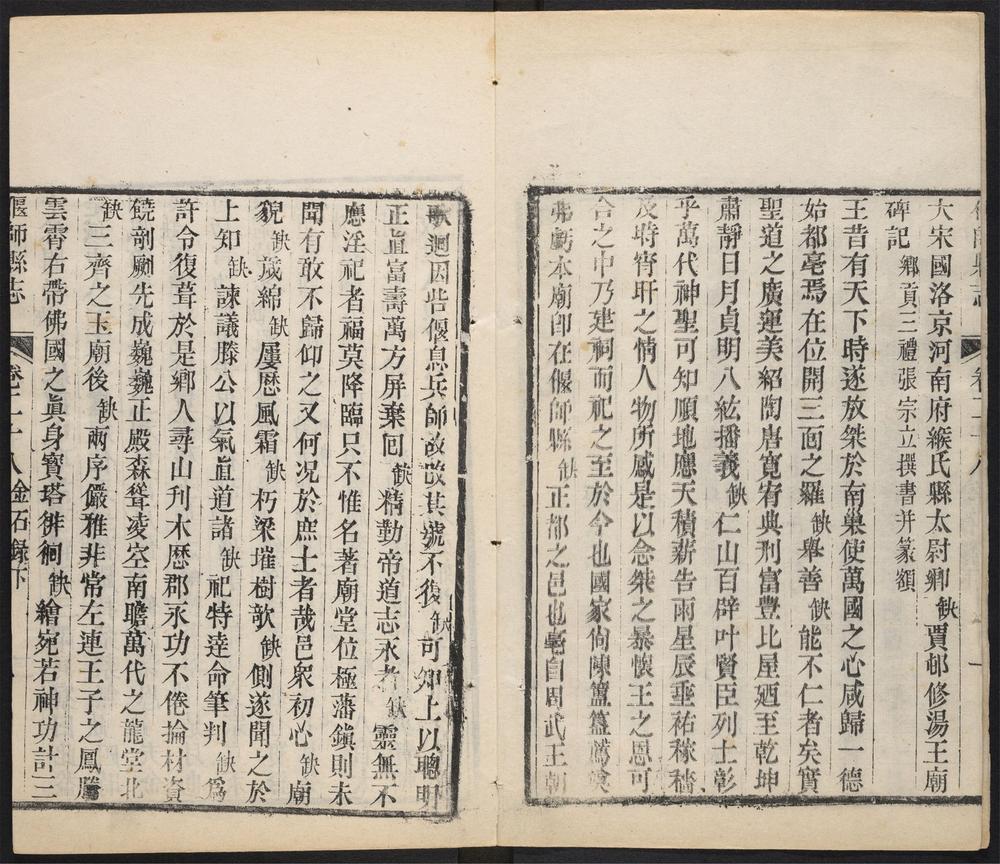 大宋國洛京河南府緱氏縣太尉卿缺賈邨修湯王廟
碑記 鄉貢三禮張宗立撰書并篆額
王昔有天下時遂放桀於南巢使萬國之心咸歸一德
始都亳焉在位開三面之羅缺舉善缺能不仁者矣實
聖道之廣運美紹陶唐寬宥典刑富豐比屋廼至乾坤
肅靜日月貞明八紘播義缺仁山百辟叶賢臣列士彰
乎萬代神聖可知順地應天積薪告雨星辰垂祐稼穡
及時宵旰之情人物所感是以念桀之暴懷王之恩可
合之中乃建祠而祀之至於今也國家尚陳簠簋薦羹
弗虧本廟即在偃師縣缺正都之邑也亳自周武王朝
歌迴因茲偃息兵師故改其號不復缺可知上以聰明
正直富壽萬方屏棄回缺精勤帝道志永者缺靈無不
應淫祀者福莫降臨只不惟名著廟堂位極藩鎮則未
聞有敢不歸仰之又何況於庶士者哉邑衆初心缺廟
貌缺歲綿缺屢歷風霜缺朽梁摧樹欹缺側遂聞之於
上知缺諫議滕公以氣直道諸缺祀特達命筆判缺為
許令復葺於是鄉人尋山刊木歷郡永功不倦掄材資
饒剞劂先成巍巍正殿森聳凌空南瞻萬代之龍堂北
缺三齊之玉廟後缺兩序儼雅非常左連王子之鳳
雲霄右帶佛國之眞身寶塔徘徊缺繪宛若神功計三
偃師縣志 卷二十八金石錄下